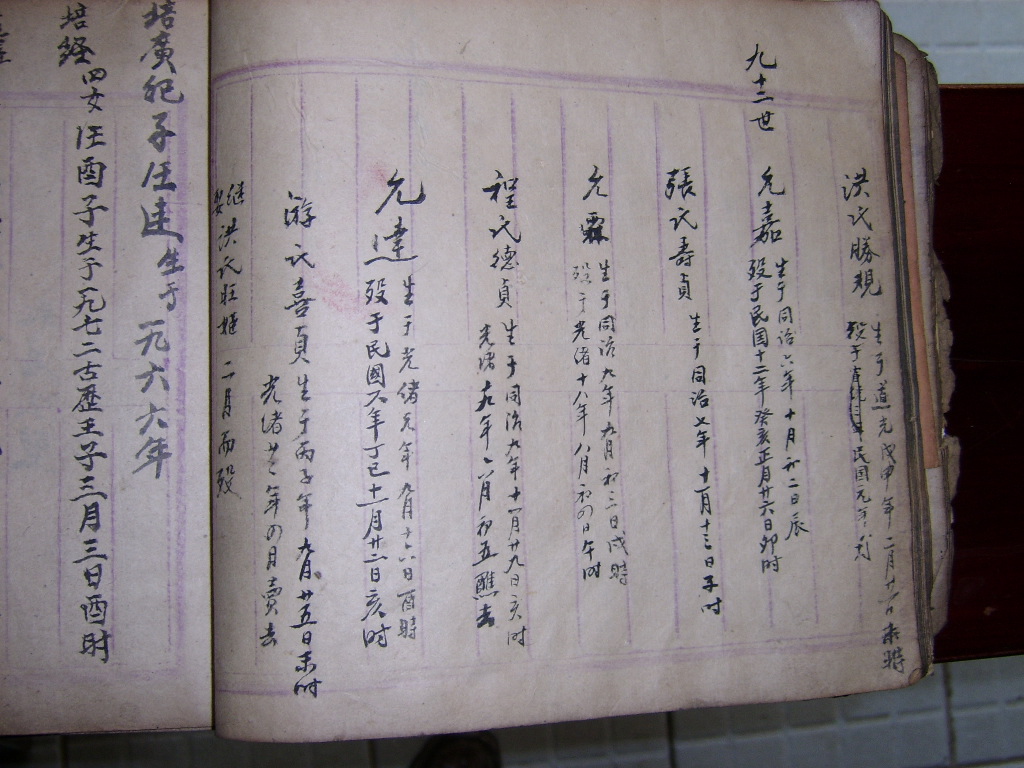 洪氏勝親
生于道光戊申年二月廿一日未時
殁于民国元年
九十二世
允嘉
生于同治六年十月初二日辰
殁于民国十二年癸亥正月廿六日卯时
張氏壽貞生于同治七年十一月十三日子时
允霖
生于同治九年九月初三日戌時
殁于光绪十八年八月初四日午时
程氏德貞
生于同治九年十一月廿九日亥时
光绪九年六月初五醮去
允達
生于光绪元年九月十六日酉時
殁于民國六年丁巳十一月廿二日亥时
游氏喜貞生于丙子年九月廿五日未时
光绪廿二年四月賣去
继娶洪氏旺姬二月而殁
培廣纪子汪速生于一九六六年
培経四女汪酉子生于一九七二古歷壬子三月三日酉时